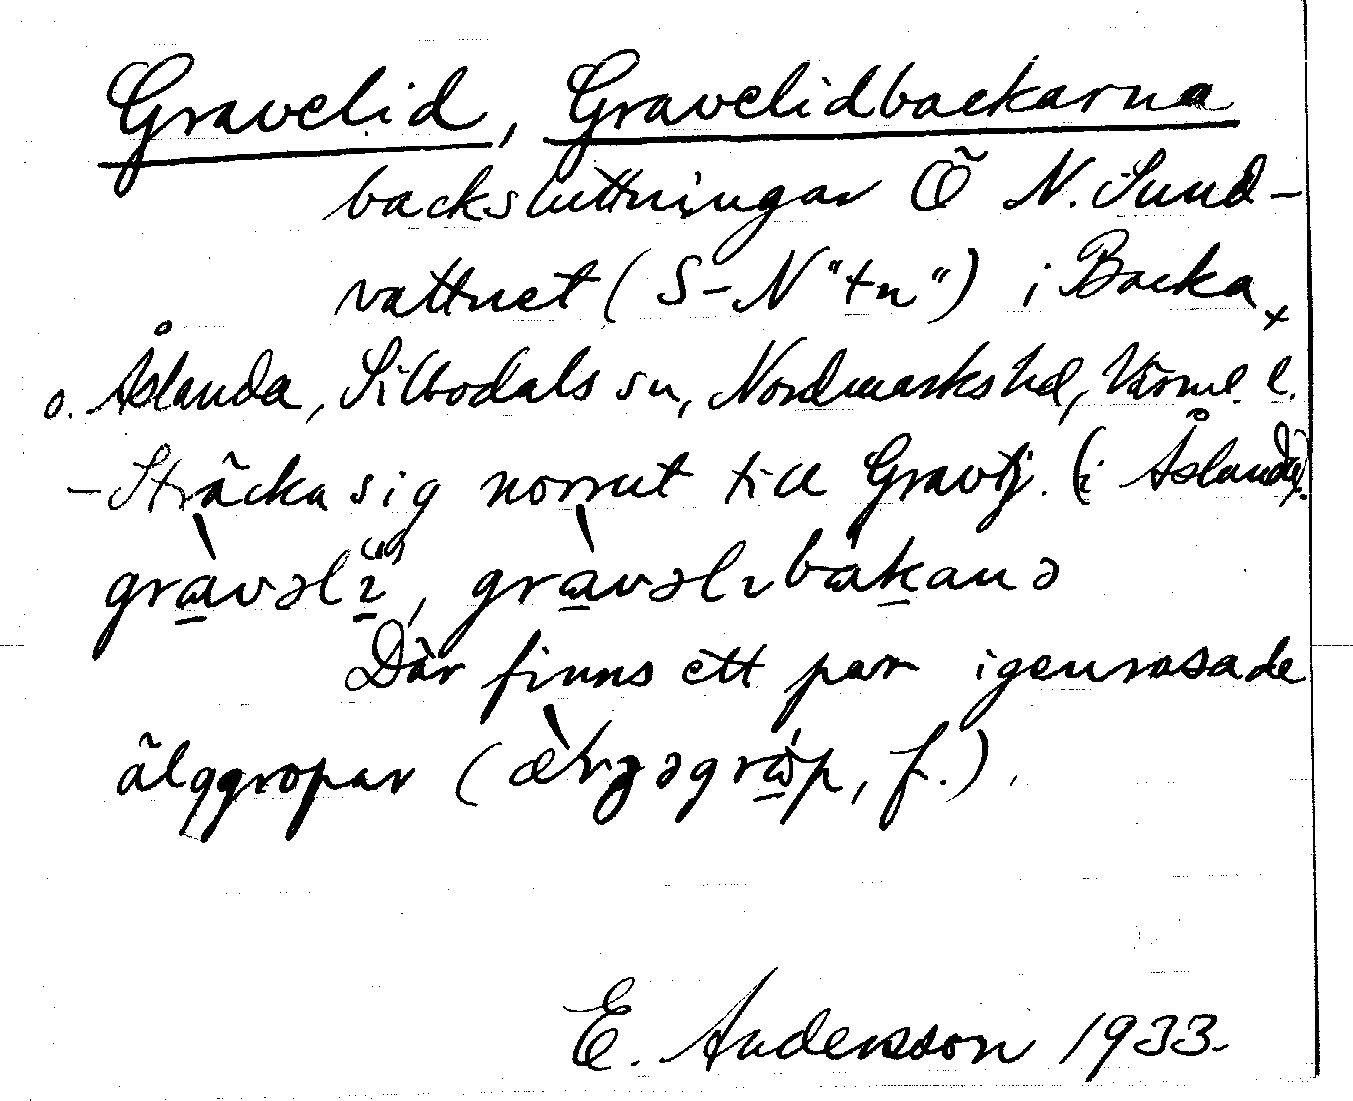 Gravelid, Gravelidbackarna
backsluttningar Ö N. Sund-
vattnet (S-N "tn") i Backa x
o. Åslanda, Silbodals sn, Nordmarks hd, Värml. l.
- Sträcka sig norrut till Gravtj. (i Åslanda).
gràvəlɪ, gràvəlɪbakanə
Där finns ett par igenrasade
älggropar (f.).
E. Andersson 1933.